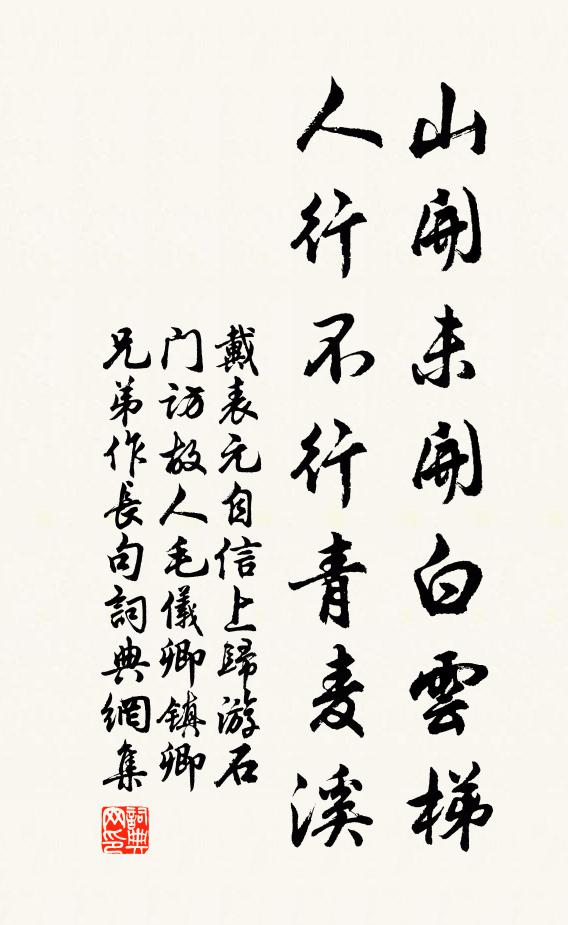 山開未開白雲梯
人行不行青麦溪
戴表元自信上歸游石
门访故人毛儀卿鎮卿
兄弟作長句詞典網集
詞典
网印